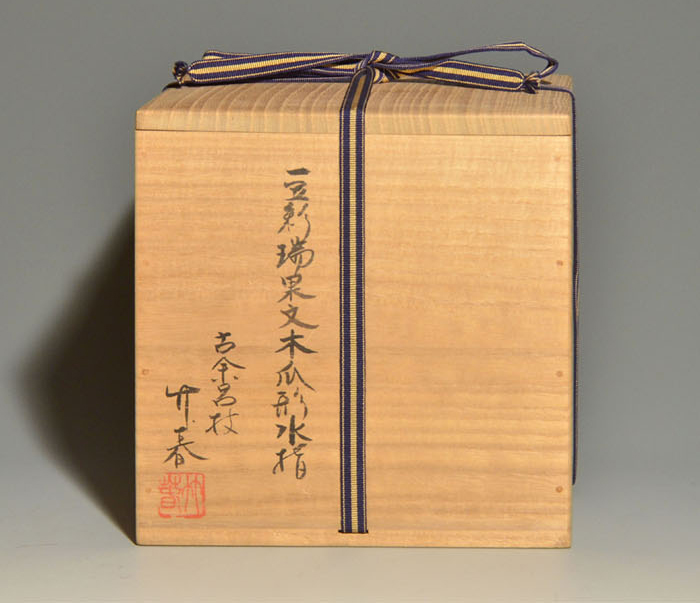 豆彩瑞果文木瓜形水指
古余呂技
竹春
竹春